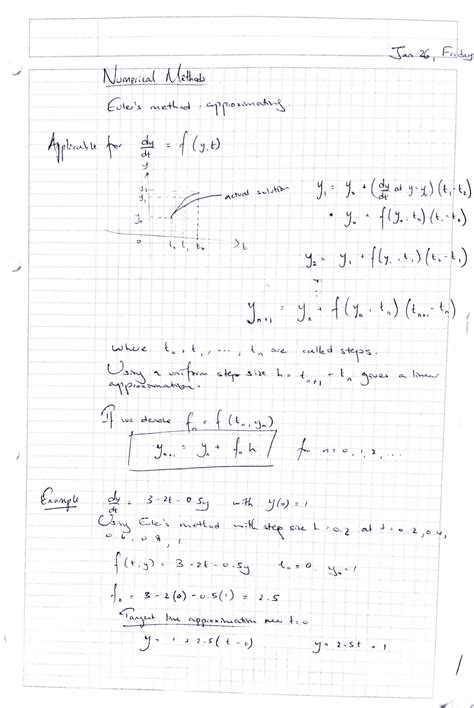 Jan 26, Friday
Numerical Methods
Euler's method: approximating
Applicable for dy/dt = f(y,t)
y
y₁
y₀
actual solution
0 t₀ t₁ t₂ > t
y₁ = y₀ + (dy/dt at y=y₀)(t₁-t₀)
= y₀ + f(y₀, t₀)(t₁-t₀)
y₂ = y₁ + f(y₁, t₁)(t₂-t₁)
⋮
yₙ₊₁ = yₙ + f(yₙ, tₙ)(tₙ₊₁-tₙ)
where t₀, t₁, ..., tₙ are called steps.
Using a uniform step size h = tₙ₊₁ - tₙ gives a linear
approximation.
If we denote fₙ = f(tₙ, yₙ)
yₙ₊₁ = yₙ + fₙ h for n = 0, 1, 2, ...
Example dy/dt = 3-2t-0.5y with y(0)=1
Using Euler's method with step size h=0.2 at t=0.2, 0.4,
0.6, 0.8, 1
f(t,y) = 3-2t-0.5y t₀=0 y₀=1
f₀ = 3-2(0)-0.5(1) = 2.5
Tangent line approximation near t=0
y = 1 + 2.5(t-0) y = 2.5t + 1
1